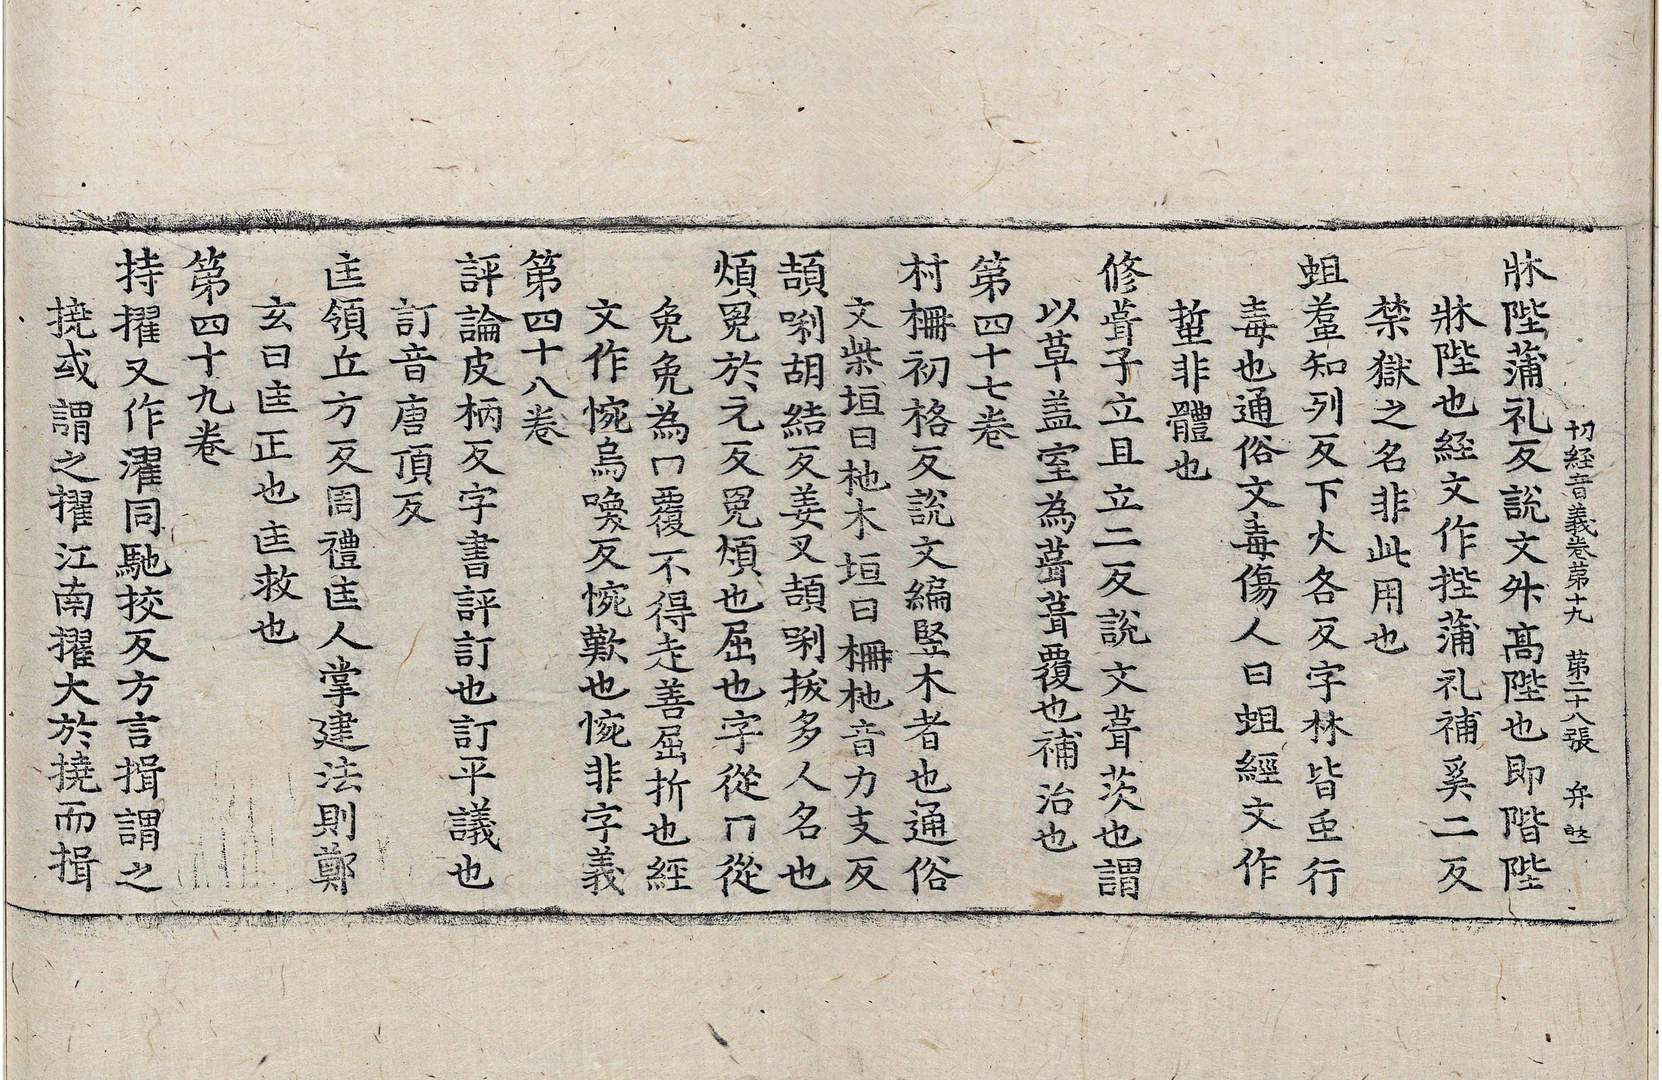 切経音義卷苐十九 苐二十八張 弁
牀陛蒲礼反說文外髙陛也即階陛
牀陛也経文作梐蒲礼補奚二反
禁獄之名非此用也
蛆蠚知列反下火各反字林皆虫行
毒也通俗文毒傷人曰蛆經文作
蜇非體也
修葺子立且立二反說文葺茨也謂
以草盖室為葺葺覆也補治也
第四十七卷
村柵初格反說文編竪木者也通俗
文柴垣曰杝木垣曰柵杝音力支反
頡唎胡結反姜叉頡唎拔多人名也
煩冤於元反冤煩也屈也字從冂從
兔兔為冂覆不得走善屈折也經
文作惋烏喚反惋歎也惋非字義
第四十八卷
評論皮柄反字書評訂也訂平議也
訂音唐頂反
匡領丘方反周禮匡人掌建法則鄭
玄曰匡正也匡救也
第四十九卷
持擢又作濯同馳挍反方言揖謂之
撓或謂之擢江南擢大於撓而揖